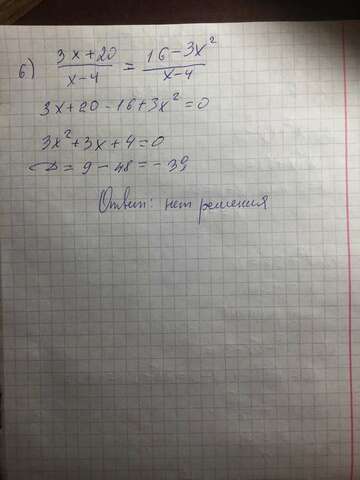 б) (3x+20)/(x-4) = (16-3x²)/(x-4)
3x+20-16+3x²=0
3x²+3x+4=0
D=9-48=-39
Ответ: нет решения